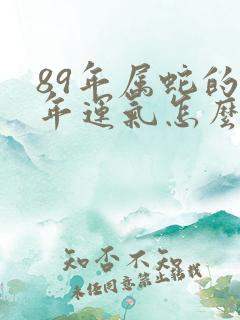 89年属蛇的
年运气怎麽
知否不知
未经同意禁止转载